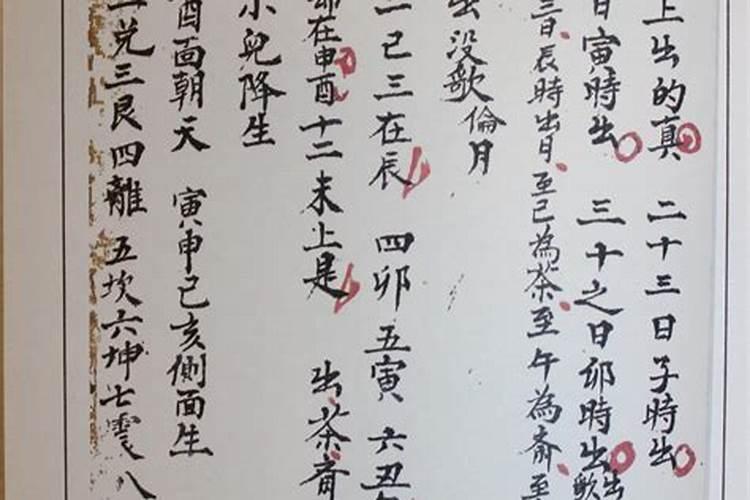 上出的真 二十三日子時出
日寅時出 三十之日卯時出 出歌
三日辰時出日至巳為茶至午為齋至
出没歌 倫月
二巳三在辰 四卯 五寅 六丑
卯在申酉十二未上是 出茶齋
小兒降生
酉面朝天 寅申巳亥側面生
二兑三艮四離五坎六坤七震八